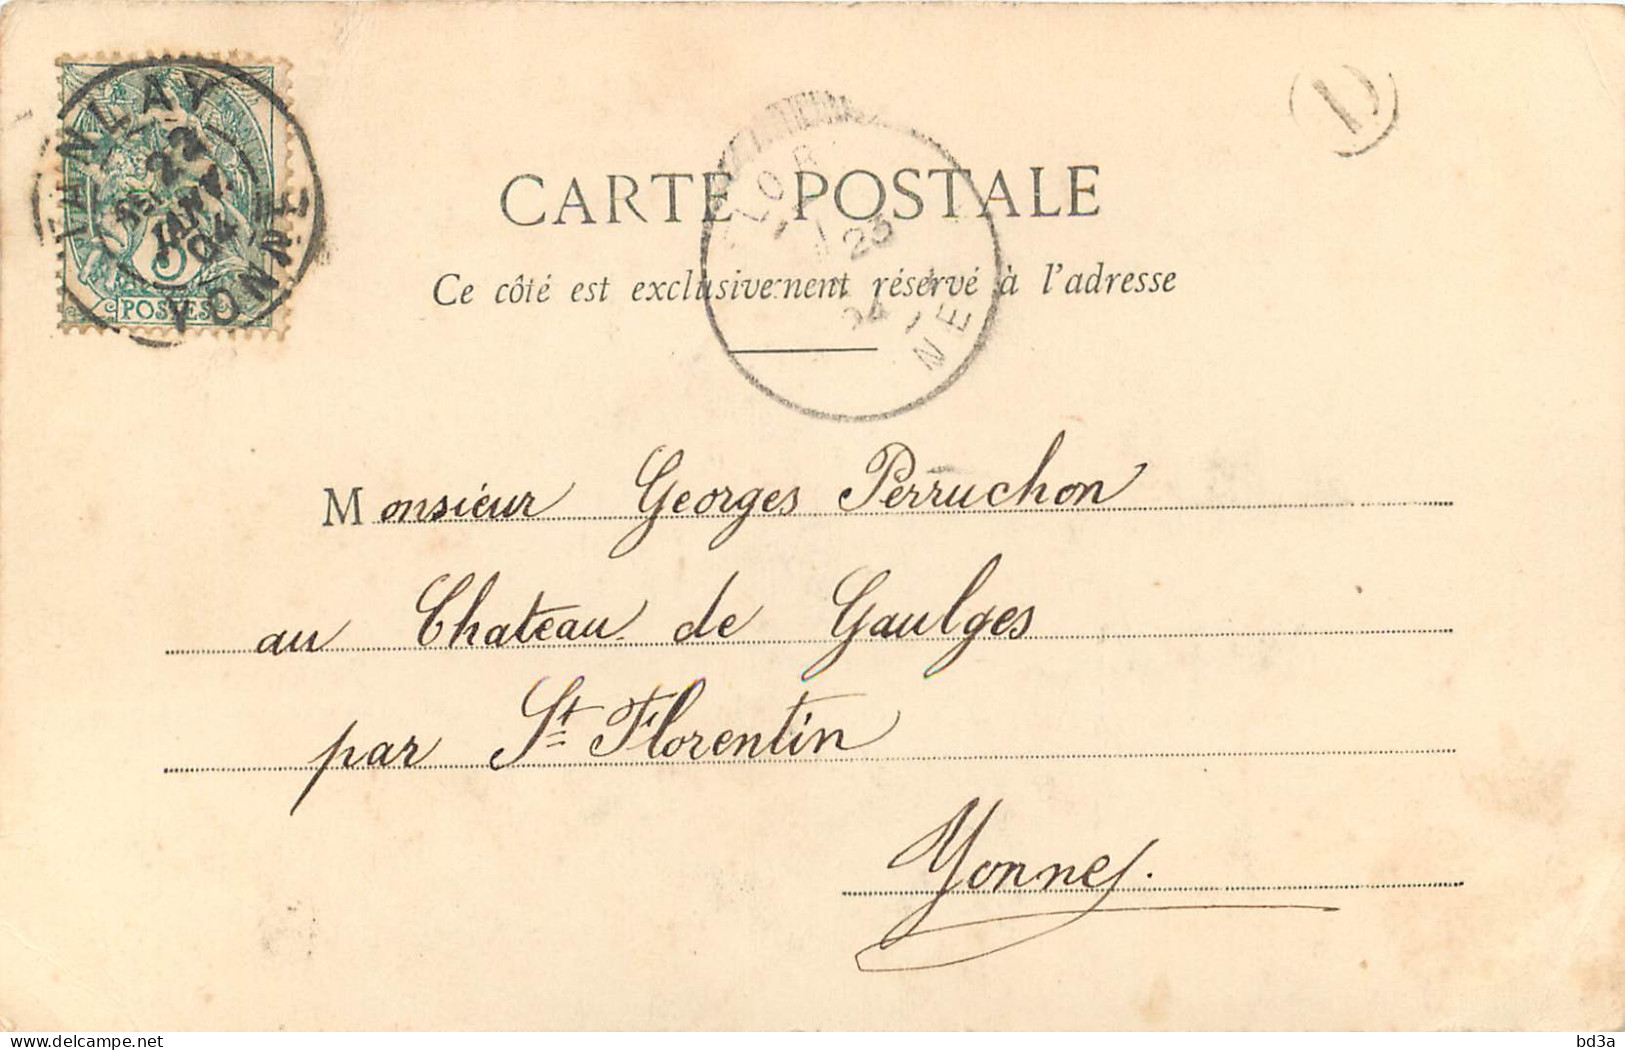 TANLAY
22
JANV.
04
YONNE
5
POSTES
D
FLOR
23
04
NE
CARTE POSTALE
Ce côté est exclusivement réservé à l'adresse
Monsieur Georges Perruchon
au Chateau de Gaulges
par St Florentin
Yonne.
delcampe.net
bd3a